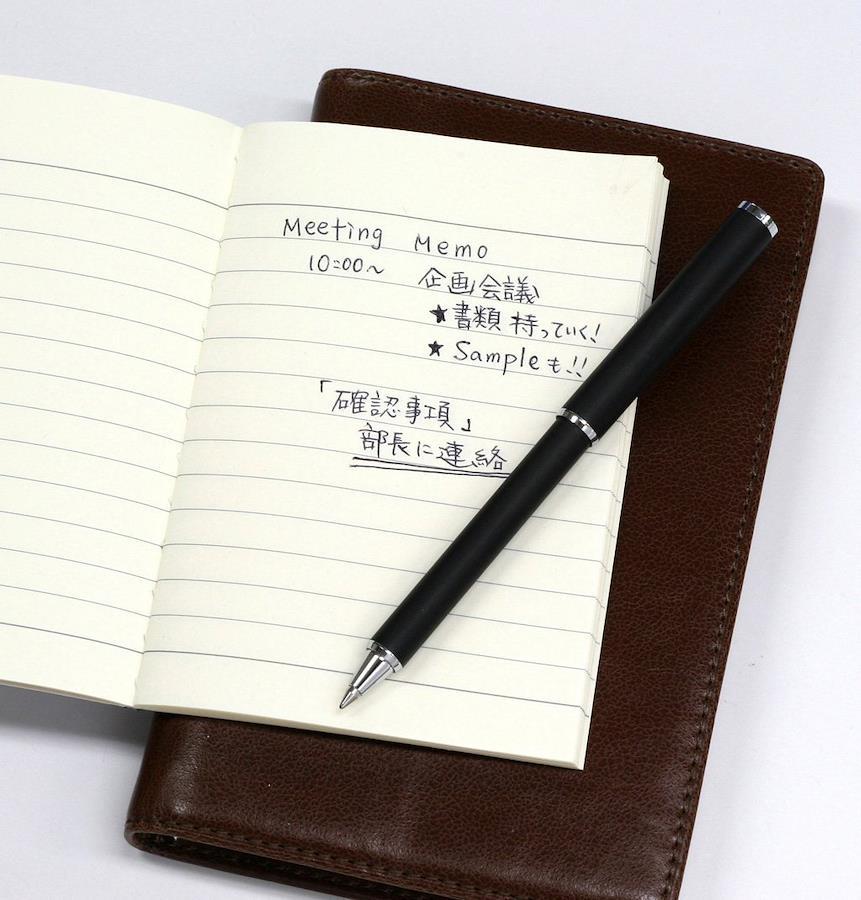 Meeting Memo
10:00~ 企画会議
★書類 持っていく!
★ Sampleも!!
「確認事項」
部長に連絡